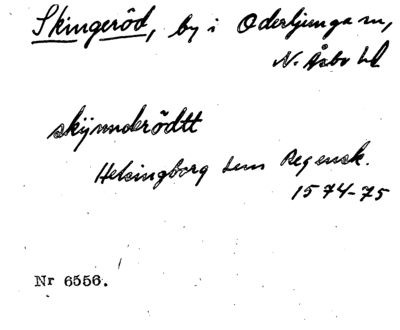 Skingeröd, by i Oderljunga sn,
N. Åsbo hd
skijnnderödtt
Helsingborg Lens Regensk.
1574-75
Nr 6556.